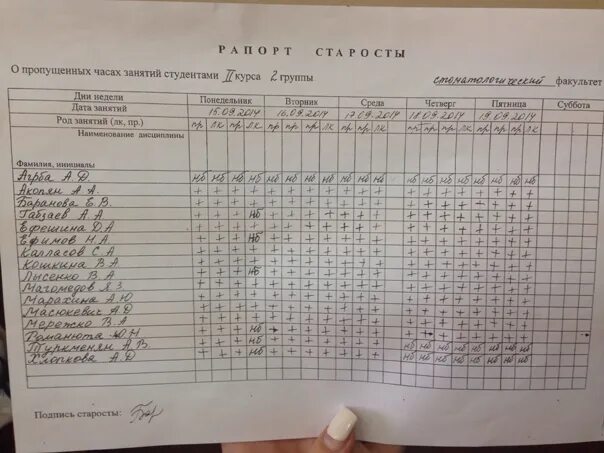 РАПОРТ СТАРОСТЫ
О пропущенных часах занятий студентами II курса 2 группы стоматологический факультет
Дни недели Понедельник Вторник Среда Четверг Пятница Суббота
Дата занятий 15.09.2014 16.09.2014 17.09.2014 18.09.2014 19.09.2014
Род занятий (лк, пр.) пр лк пр лк пр пр пр лк пр пр лк пр пр пр лк пр пр пр лк
Наименование дисциплины
Фамилия, инициалы
Агрба А.Д нб нб нб нб нб нб нб нб нб нб нб нб нб нб нб нб нб нб нб
Акопян А.А. + + + + + + + + + + + + + + + + + + +
Баранова Е.В. + + + + + + + + + + + + + + + + - + +
Габзаев А А + + + нб + + + + + + + + + + + + + + +
Ефешина Д.А + + + + + + + + + + + + + + + + + + +
Ефимов Н.А + + + нб + + + + + + + + + + + + + + +
Калласов С А + + + + + + + + + + + + + + + + + + +
Кошкина В А + + + + + + + + + + + + + + + + + + +
Лысенко В А + + + нб + + + + + + + + + + + + + + +
Магомедов Я З. + + + + + + + + + + + + + + + + + + +
Марахина А.Ю + + + + + + + + + + + + + + + + + + +
Масюкевич А.Д + + + + + + + + + + + + + + + + + + +
Мережко В.А + + + + + + + + + + + + + + + + + + +
Романюта Ю.Н + + + нб + + + + + + + + + + + + + + +
Туркменян А.В. + + + нб + + + + + + + нб нб нб нб нб нб нб нб
Хлопкова А.Д + + + нб + + + + + + + нб нб нб нб нб нб нб нб
Подпись старосты: